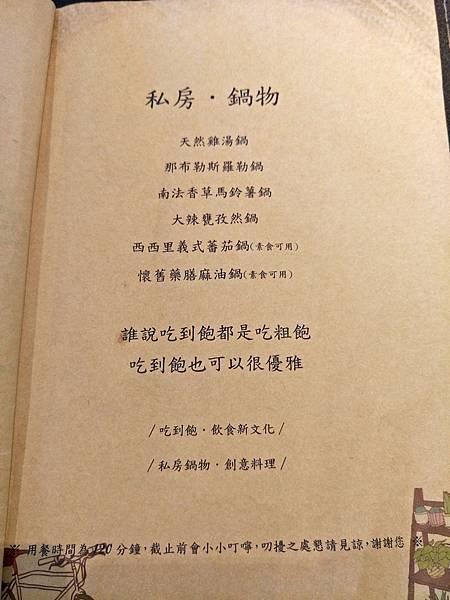 私房·鍋物
天然雞湯鍋
那布勒斯羅勒鍋
南法香草馬鈴薯鍋
大辣甕孜然鍋
西西里義式蕃茄鍋(素食可用)
懷舊藥膳麻油鍋(素食可用)
誰說吃到飽都是吃粗飽
吃到飽也可以很優雅
/吃到飽·飲食新文化/
/私房鍋物·創意料理/
※ 用餐時間為120分鐘,截止前會小小叮嚀,叨擾之處懇請見諒,謝謝您 ※